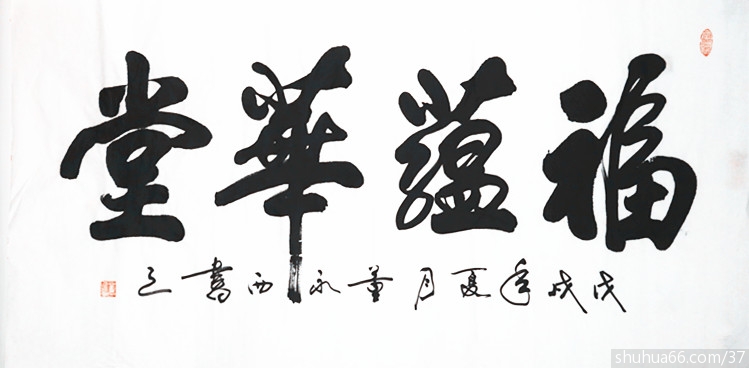 福蘊華堂
戊戌年夏月董永西書之
shuhua66.com/37